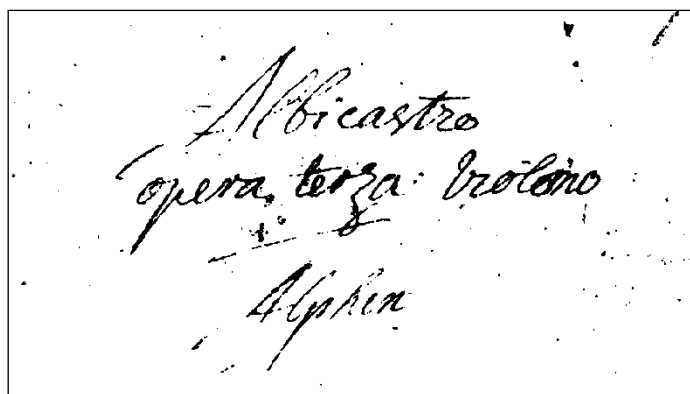 Albicastro
opera terza: Violono
1°
Alphen